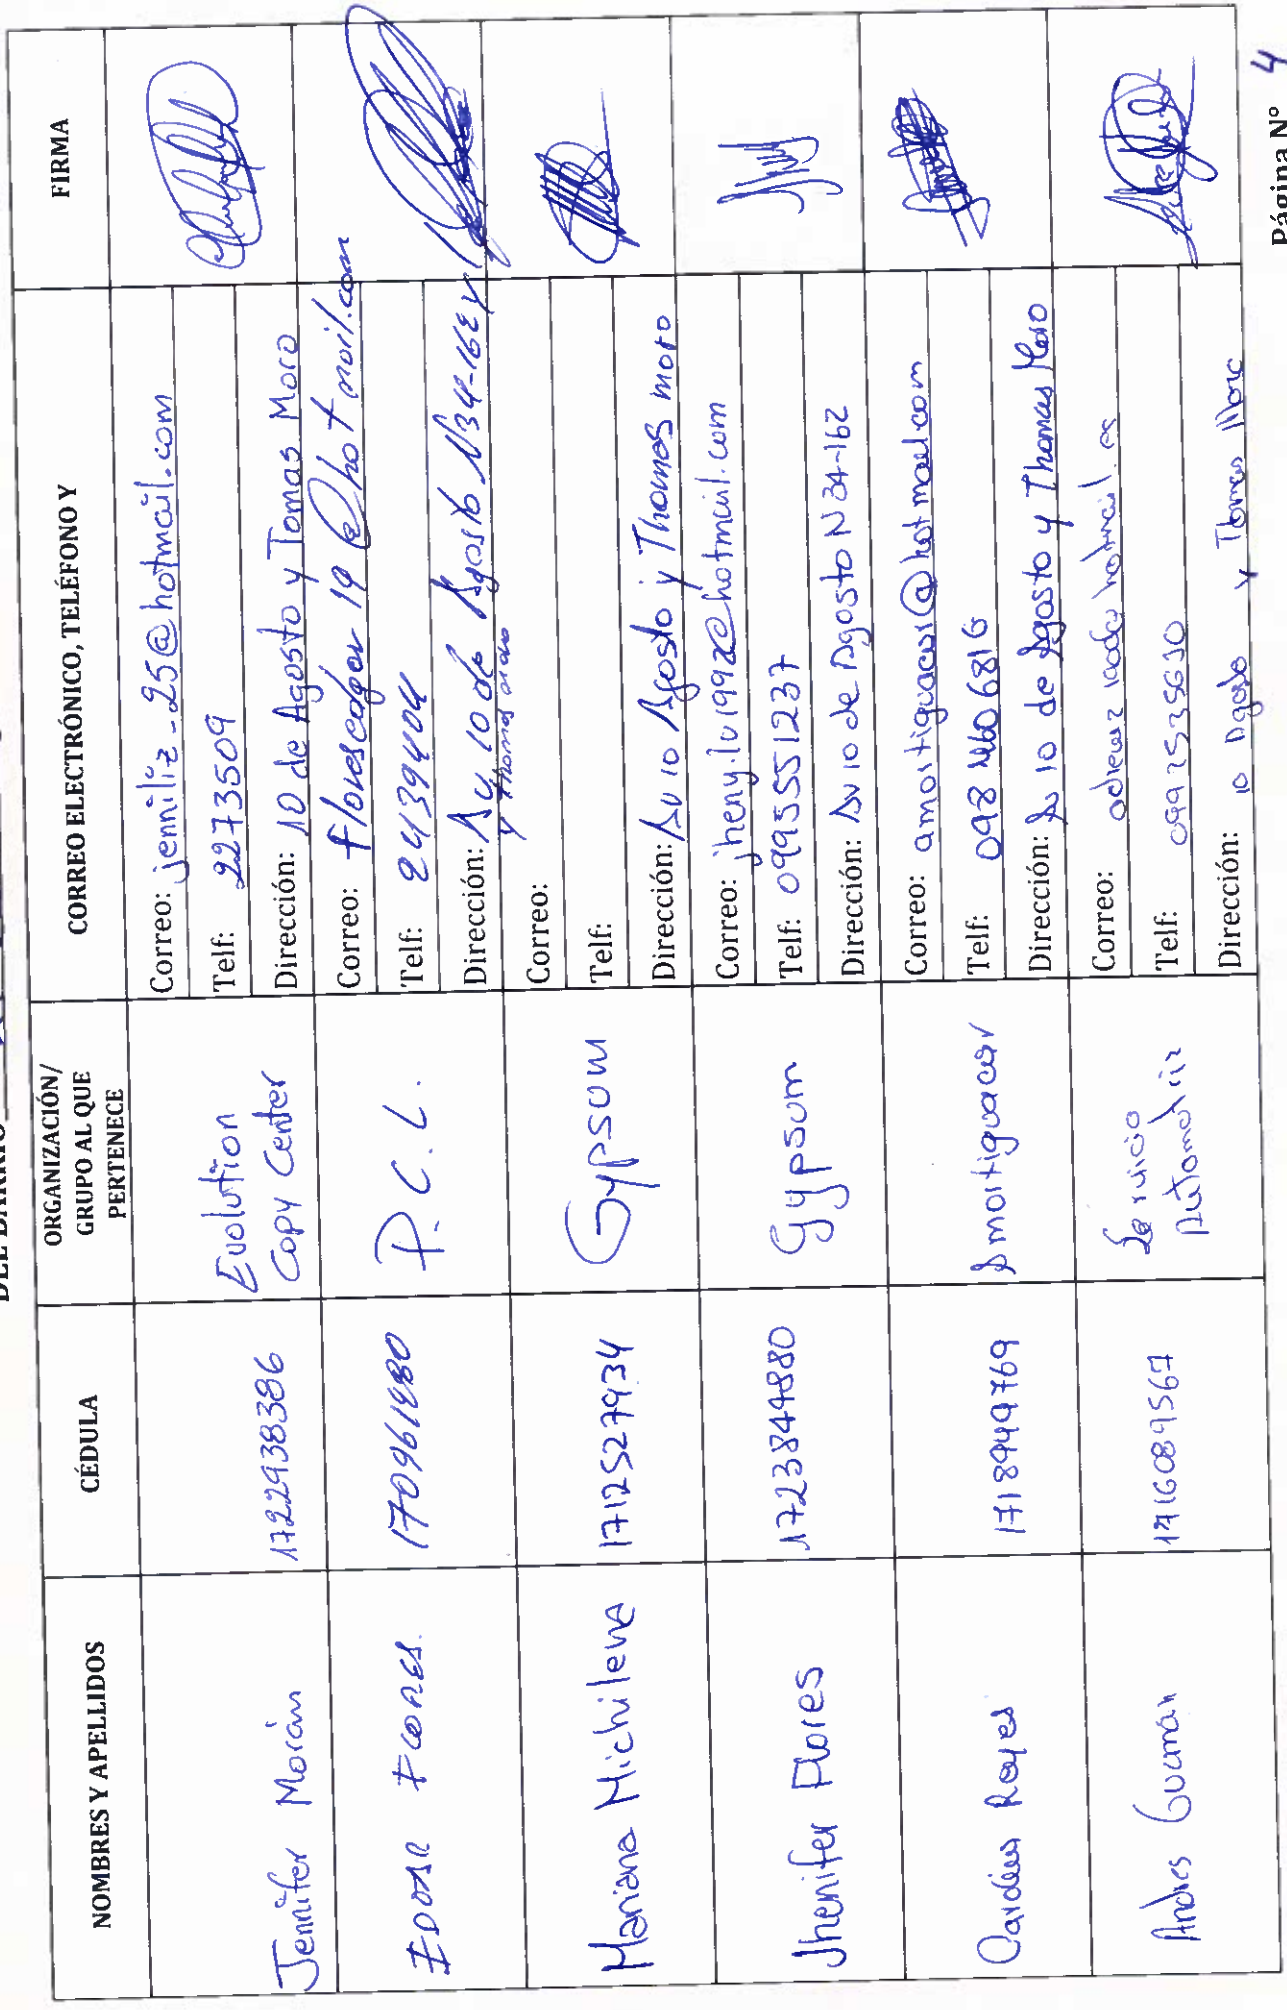 NOMBRES Y APELLIDOS
CÉDULA
ORGANIZACIÓN/
GRUPO AL QUE
PERTENECE
CORREO ELECTRÓNICO, TELÉFONO Y
FIRMA
Jennifer Morán
1722938386
Evolution
Copy Center
Correo: jenniliz_25@hotmail.com
Telf: 2273509
Dirección: 10 de Agosto y Tomas Moro
EDGAR FLORES.
170961480
P.C.L.
Correo: floresedgar19@hotmail.com
Telf: 2439404
Dirección: Av. 10 de Agosto N34-162 y
y Thomas moro
Mariana Michilena
1712527934
Gypsom
Correo:
Telf:
Dirección: Av 10 Agosto y Thomas moro
Jhenifer Flores
1723844880
Gypsum
Correo: jheny.lu1992@hotmail.com
Telf: 0995551237
Dirección: Av 10 de Agosto N34-162
Reyes
1718949769
Amortiguacar
Correo: amortiguacar@hotmail.com
Telf: 0984606816
Dirección: Av 10 de Agosto y Thomas Moro
Andres Guzmán
1716089567
Servicio
Automotriz
Correo:
Telf: 0992535630
Dirección: 10 Agosto y Tomas Moro
Página N° 4